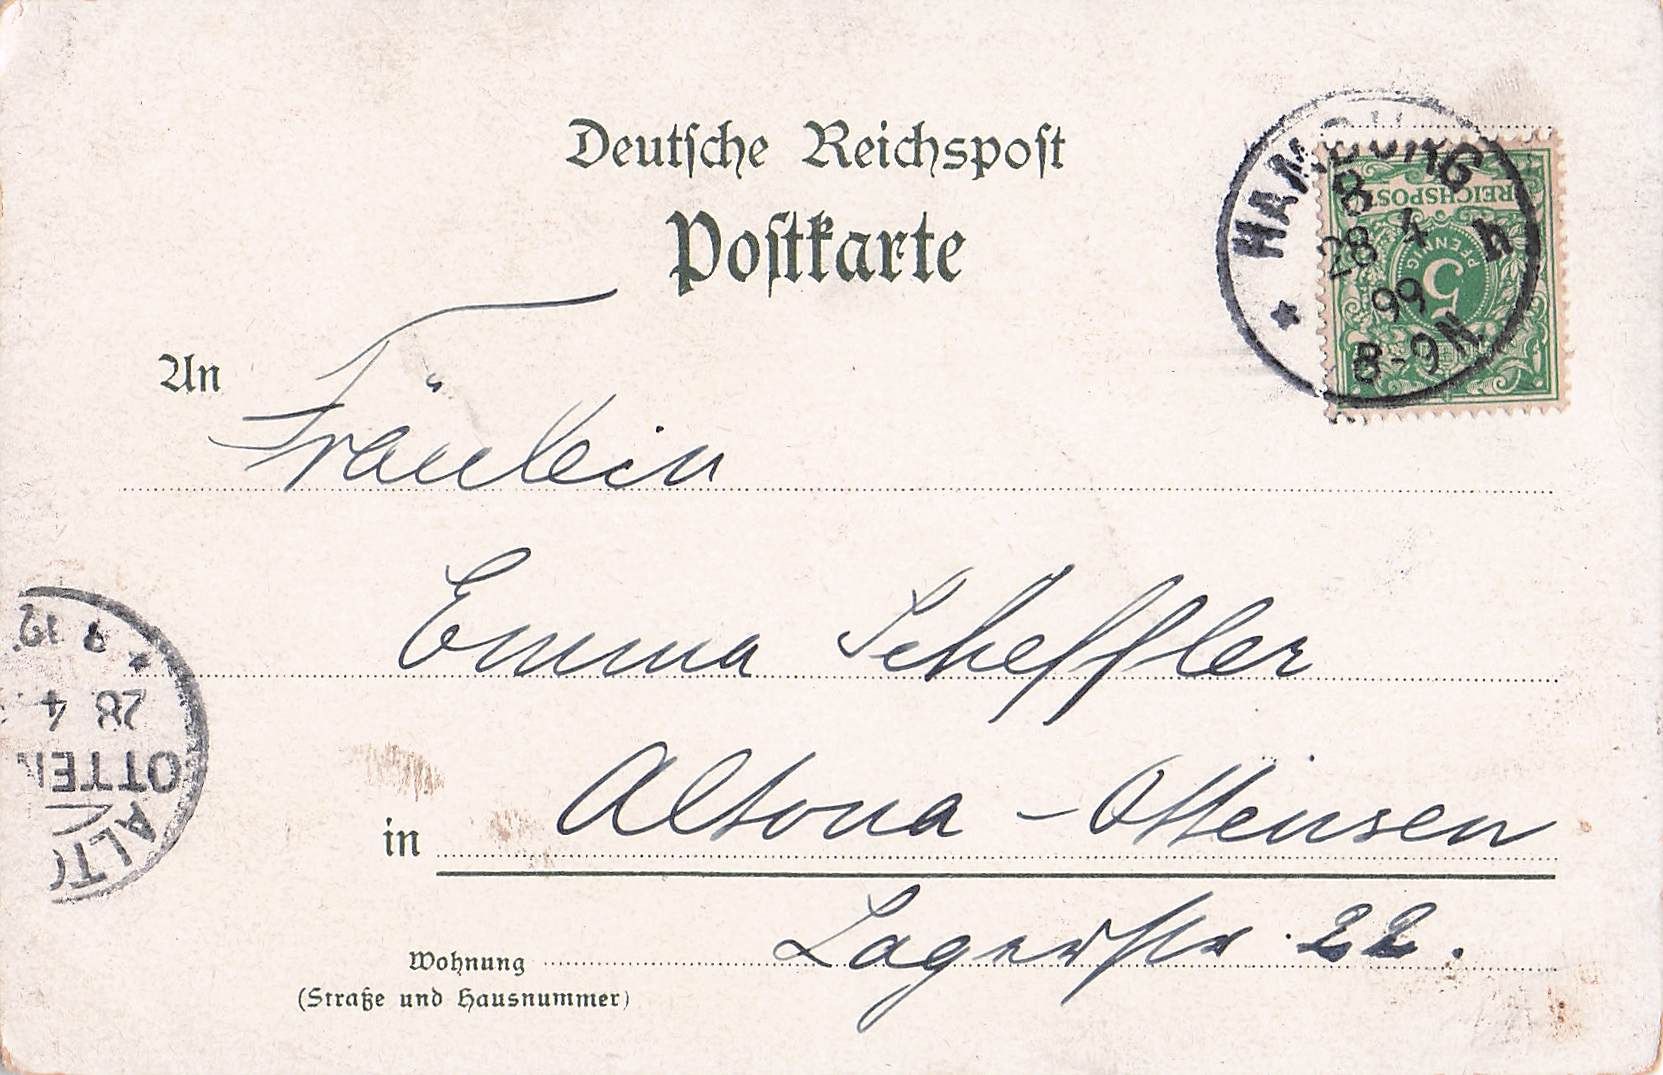 Deutsche Reichspost
Postkarte
HAMBURG
8
28 4
99
8-9N
REICHSPOST
5
PFENNIG
An Fräulein
Emma Scheffler
in Altona-Ottensen
Wohnung Lagerstr 22.
(Straße und Hausnummer)
ALTO
OTTEN
28 4